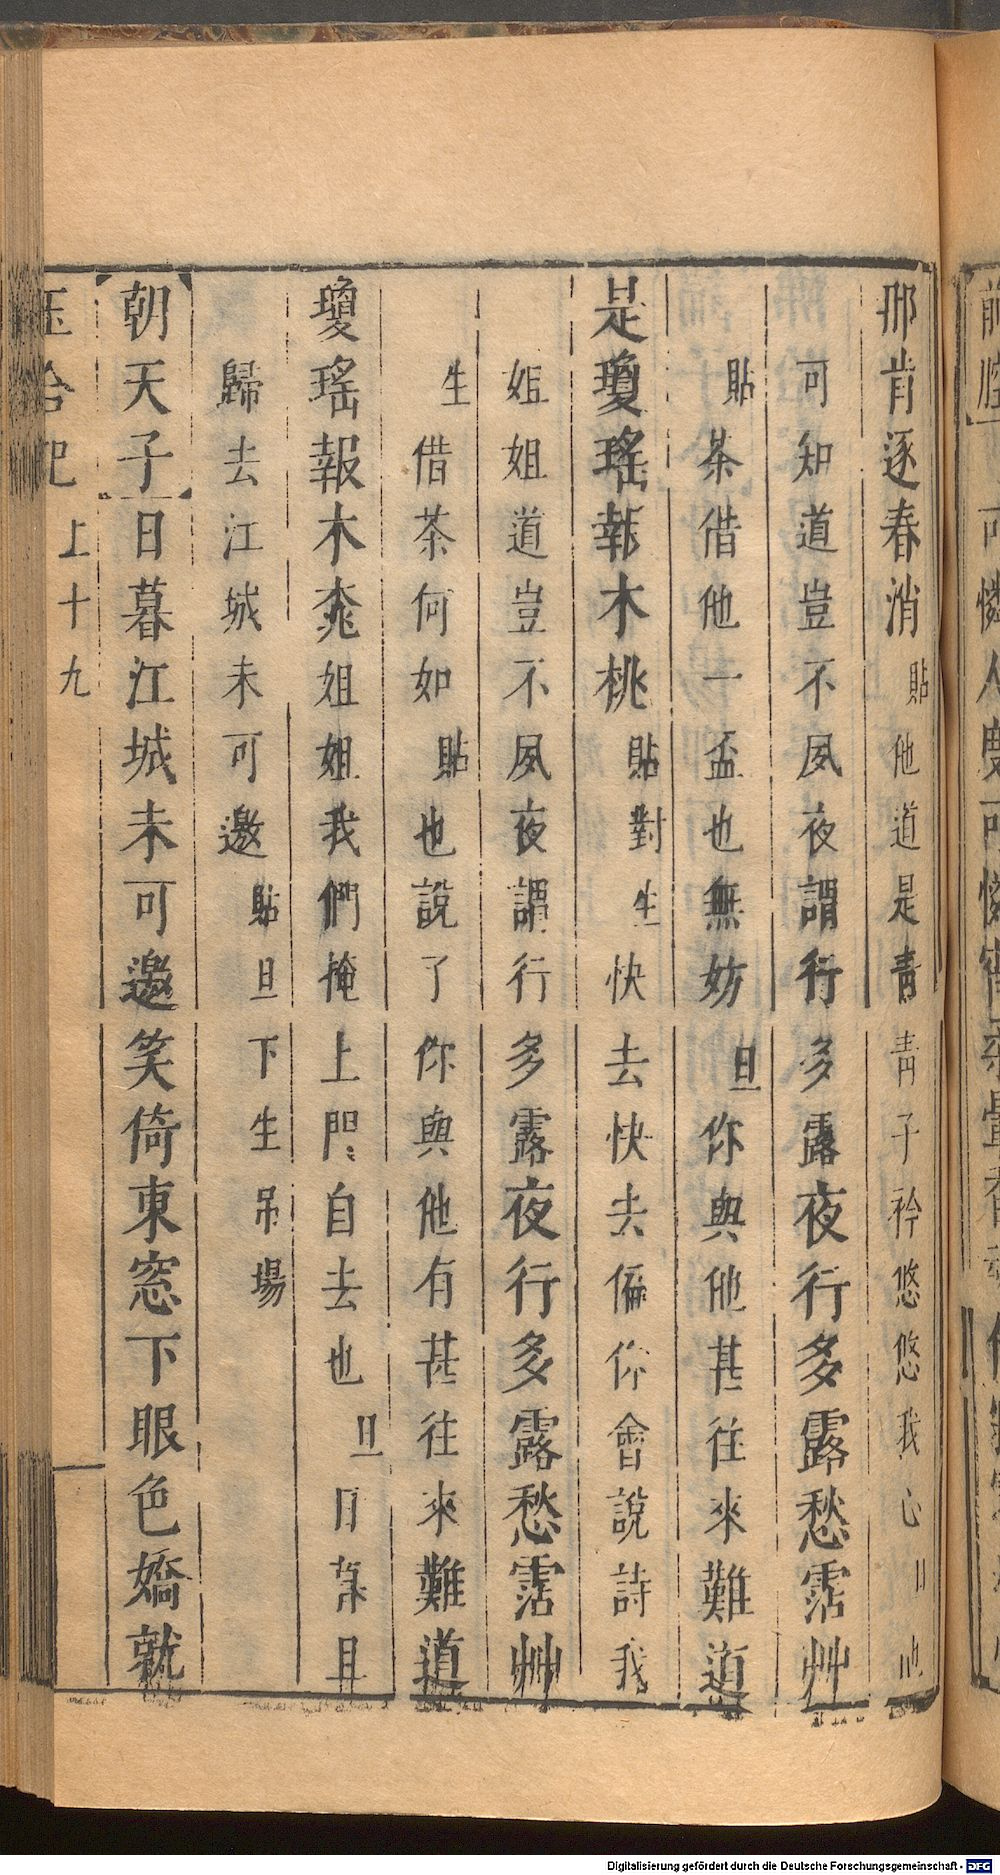 那肯逐春消貼他道是青青子衿悠悠我心旦他
可知道豈不夙夜謂行多露夜行多露愁霑艸
貼茶借他一盃也無妨旦你與他甚往來難道
是瓊瑤報木桃貼對生快去快去倆你會說詩我
姐姐道豈不夙夜謂行多露夜行多露愁霑艸
生借茶何如貼也說了你與他有甚往來難道
瓊瑤報木桃姐姐我們掩上門自去也旦且
歸去江城未可邀貼旦下生吊場
朝天子日暮江城未可邀笑倚東窓下眼色嬌就
玉合記上十九
前腔可憐人度可憐宵
Digitalisierung gefördert durch die Deutsche Forschungsgemeinschaft - DFG